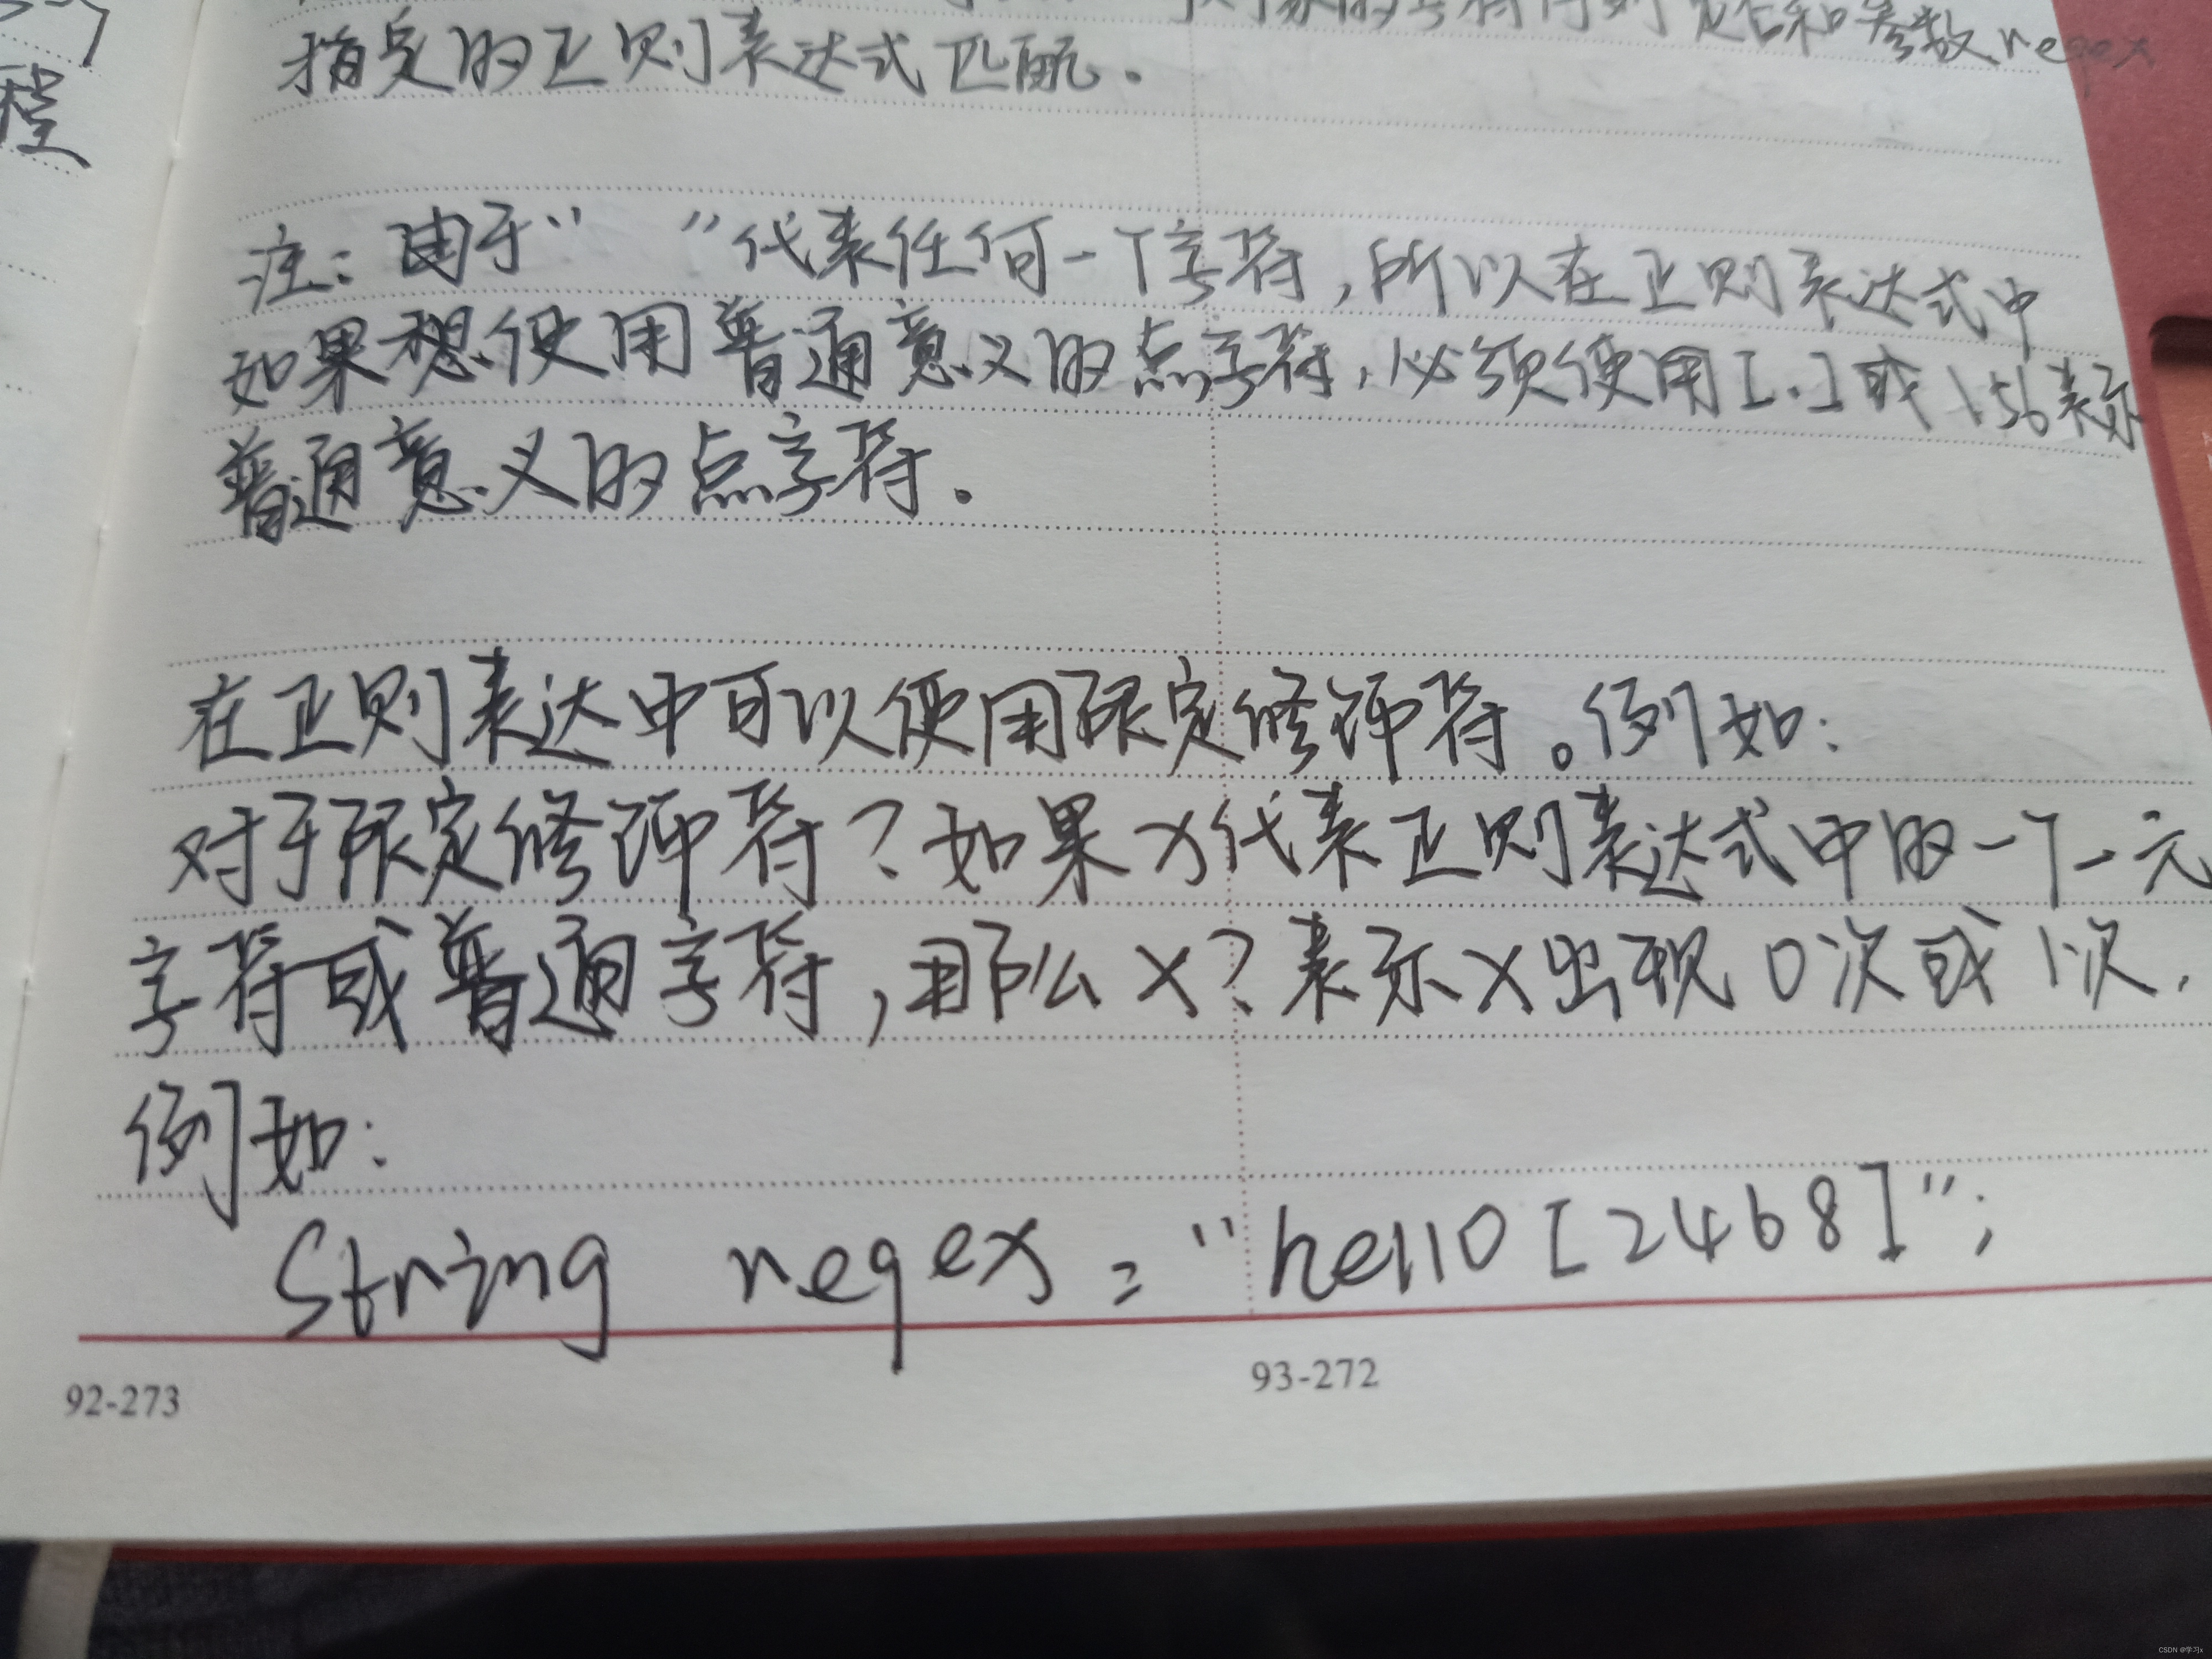 对象的字符序列是否和参数regex
指定的正则表达式匹配.
程
注: 由于“ ”代表任何一个字符,所以在正则表达式中
如果想使用普通意义的点字符,必须使用[.]或\56表示
普通意义的点字符.
在正则表达中可以使用限定修饰符。例如:
对于限定修饰符?如果X代表正则表达式中的一个元
字符或普通字符,那么X?表示X出现0次或1次,
例如:
String regex = "hello[2468]";
92-273
93-272
CSDN @学习x